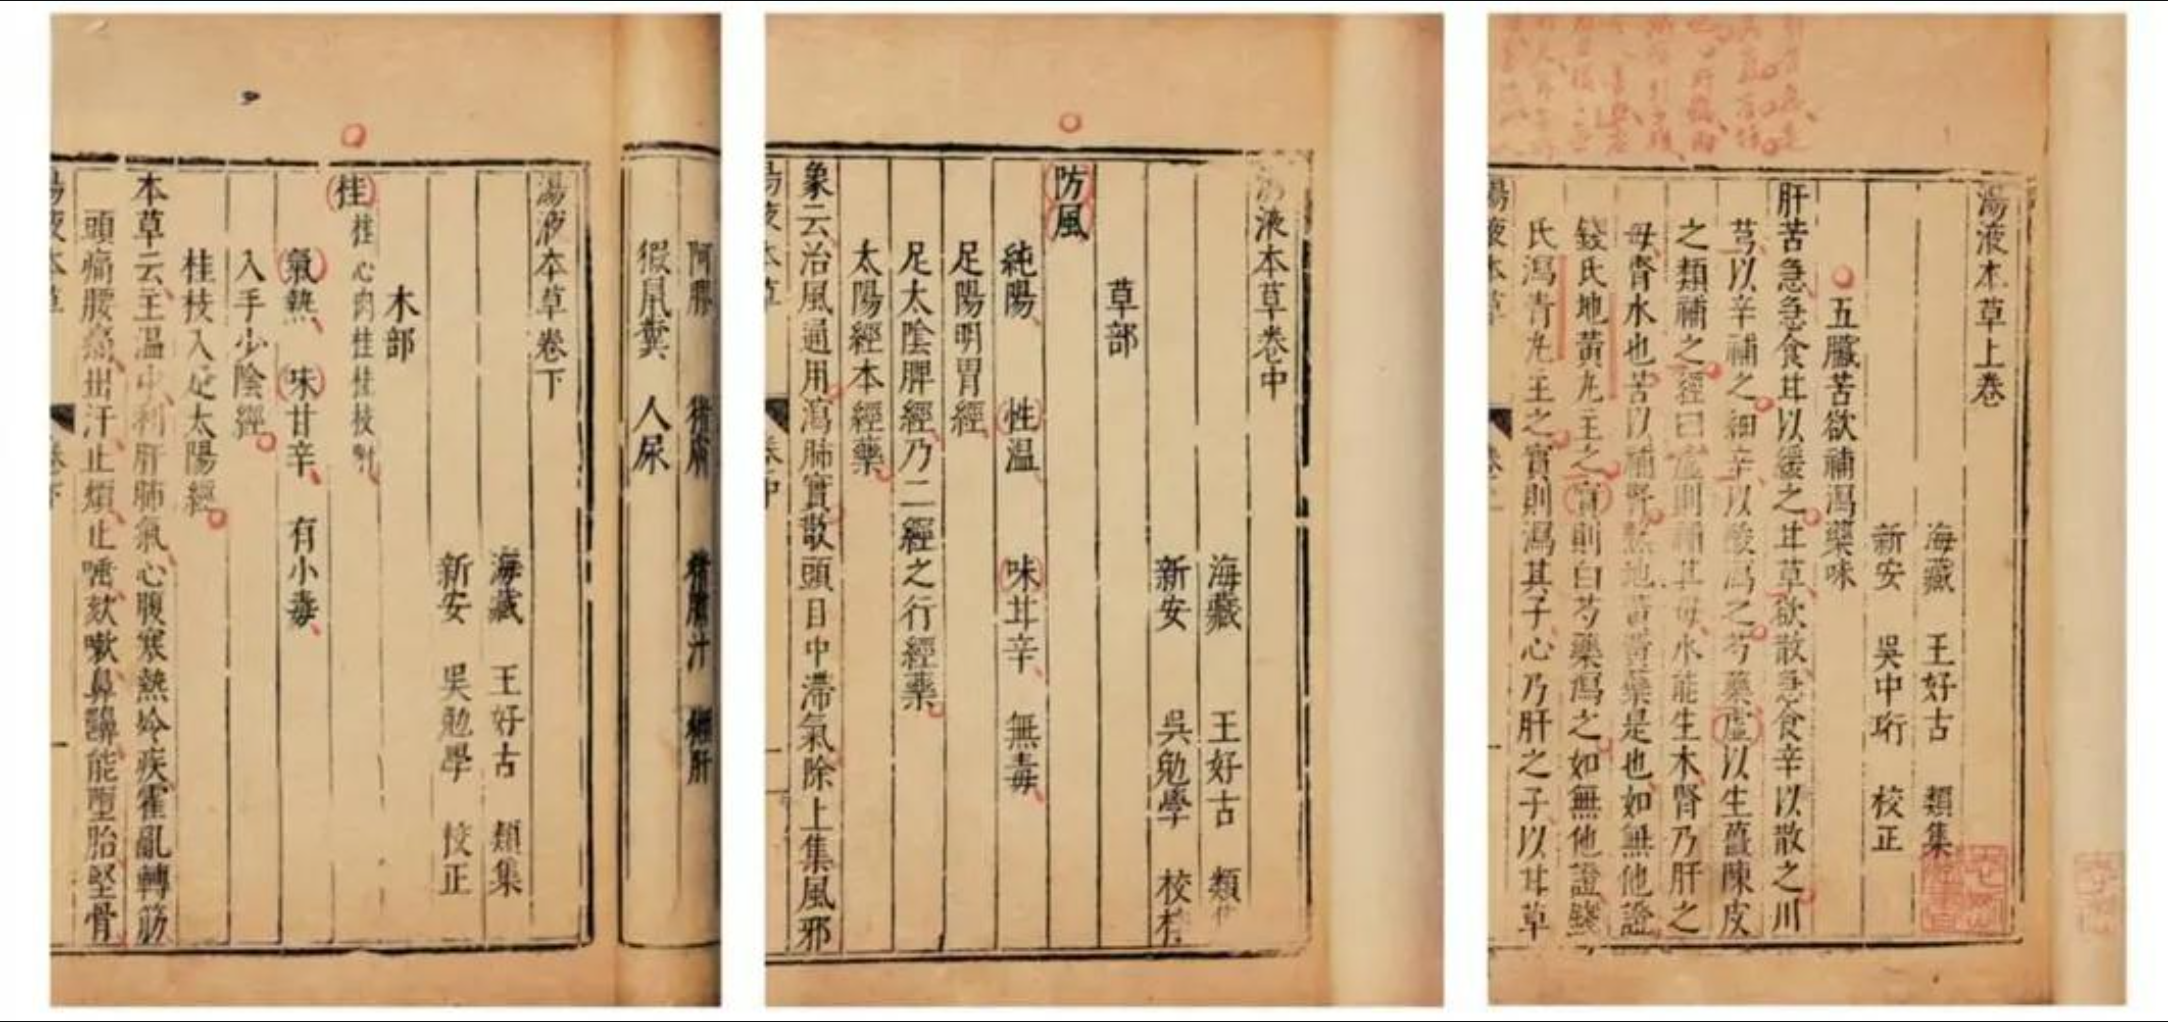 湯液本草上卷
海藏 王好古 類集
新安 吳中珩 校正
五臟苦欲補瀉藥味
肝苦急急食甘以緩之甘草欲散急食辛以散之川
芎以辛補之細辛以酸瀉之芍藥虛以生薑陳皮
之類補之經曰虛則補其母水能生木腎乃肝之
母腎水也苦以補腎熟地黃黃蘗是也如無他證
錢氏地黃丸主之實則白芍藥瀉之如無他證錢
氏瀉青丸主之實則瀉其子心乃肝之子以甘草
湯液本草
液本草卷中
海藏 王好古 類
新安 吳勉學 校
草部
防風
純陽 性溫 味甘辛 無毒
足陽明胃經
足太陰脾經乃二經之行經藥
太陽經本經藥
象云治風通用瀉肺實散頭目中滯氣除上焦風邪
湯液本草 卷中
阿膠 豬膚 豬膽汁 獺肝
猳鼠糞 人尿
湯液本草卷下
海藏 王好古 類集
新安 吳勉學 校正
木部
桂 桂心肉桂桂枝附
氣熱 味甘辛 有小毒
入手少陰經
桂枝入足太陽經
本草云主溫中利肝肺氣心腹寒熱冷疾霍亂轉筋
頭痛腰痛出汗止煩止唾欬嗽鼻齆能墮胎堅骨
湯液本草 卷下